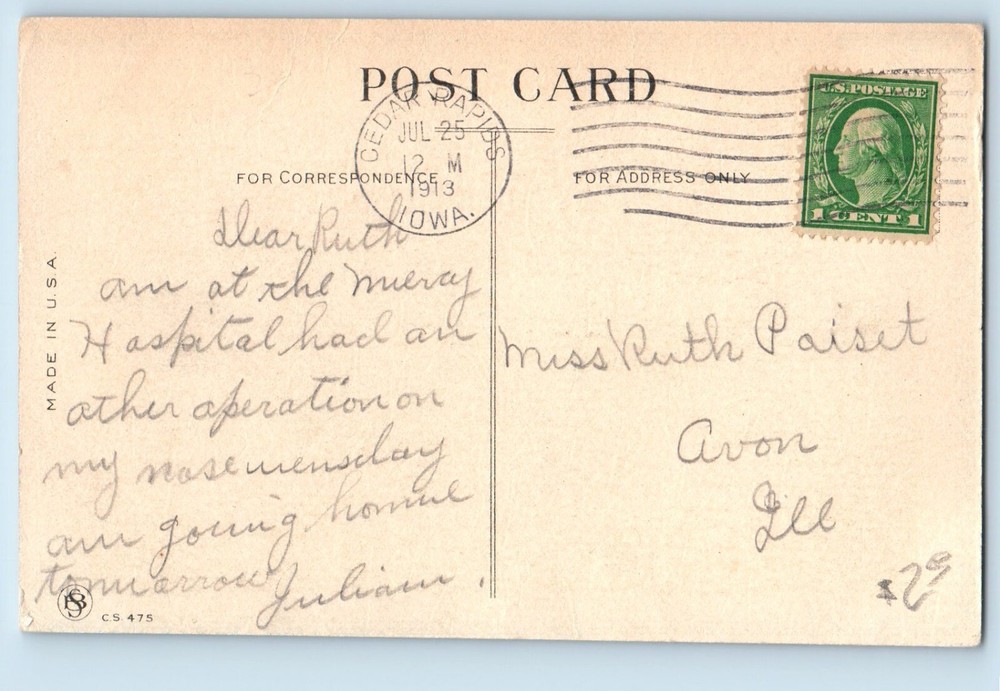 POST CARD
CEDAR RAPIDS
JUL 25
12 M
1913
IOWA.
U.S. POSTAGE
1 CENT 1
FOR CORRESPONDENCE
FOR ADDRESS ONLY
MADE IN U.S.A.
Dear Ruth
am at the mercy
Hospital had an
other operation on
my nose wensday
am going home
tomarrow
Julian.
Miss Ruth Paiset
Avon
Ill
C.S. 475